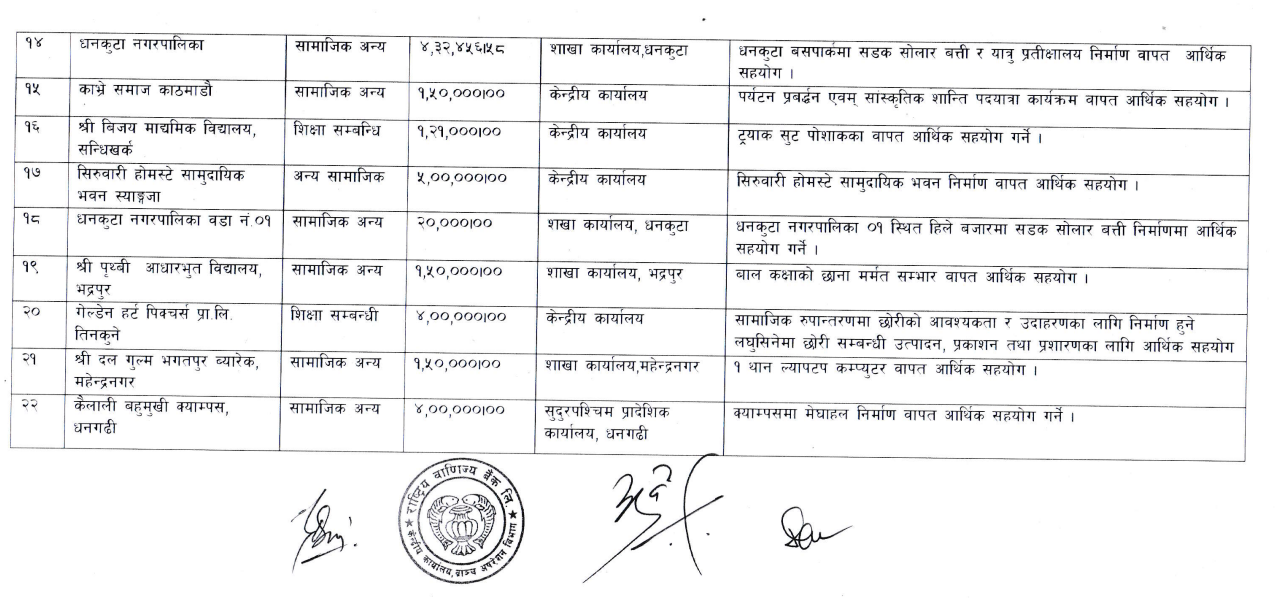 १४ धनकुटा नगरपालिका सामाजिक अन्य ४,३२,४५६।५८ शाखा कार्यालय,धनकुटा धनकुटा बसपार्कमा सडक सोलार बत्ती र यात्रु प्रतीक्षालय निर्माण वापत आर्थिक
सहयोग ।
१५ काभ्रे समाज काठमाडौ सामाजिक अन्य १,५०,०००।०० केन्द्रीय कार्यालय पर्यटन प्रवर्द्धन एवम् सांस्कृतिक शान्ति पदयात्रा कार्यक्रम वापत आर्थिक सहयोग ।
१६ श्री बिजय माद्यमिक विद्यालय, शिक्षा सम्बन्धि १,२१,०००।०० केन्द्रीय कार्यालय ट्रयाक सुट पोशाकका वापत आर्थिक सहयोग गर्ने ।
सन्धिखर्क
१७ सिरुवारी होमस्टे सामुदायिक अन्य सामाजिक ५,००,०००।०० केन्द्रीय कार्यालय सिरुवारी होमस्टे सामुदायिक भवन निर्माण वापत आर्थिक सहयोग ।
भवन स्याङ्गजा
१८ धनकुटा नगरपालिका वडा नं.०१ सामाजिक अन्य २०,०००।०० शखा कार्यालय, धनकुटा धनकुटा नगरपालिका ०१ स्थित हिले बजारमा सडक सोलार बत्ती निर्माणमा आर्थिक
सहयोग गर्ने ।
१९ श्री पृथ्बी आधारभुत विद्यालय, सामाजिक अन्य १,५०,०००।०० शाखा कार्यालय, भद्रपुर बाल कक्षाको छाना मर्मत सम्भार वापत आर्थिक सहयोग ।
भद्रपुर
२० गेल्डेन हर्ट पिक्चर्स प्रा.लि. शिक्षा सम्बन्धी ४,००,०००।०० केन्द्रीय कार्यालय सामाजिक रुपान्तरणमा छोरीको आवश्यकता र उदाहरणका लागि निर्माण हुने
तिनकुने लघुसिनेमा छोरी सम्बन्धी उत्पादन, प्रकाशन तथा प्रशारणका लागि आर्थिक सहयोग
२१ श्री दल गुल्म भगतपुर ब्यारेक, सामाजिक अन्य १,५०,०००।०० शाखा कार्यालय,महेन्द्रनगर १ थान ल्यापटप कम्प्युटर वापत आर्थिक सहयोग ।
महेन्द्रनगर
२२ कैलाली बहुमुखी क्याम्पस, सामाजिक अन्य ४,००,०००।०० सुदुरपश्चिम प्रादेशिक क्याम्पसमा मेघाहल निर्माण वापत आर्थिक सहयोग गर्ने ।
धनगढी कार्यालय, धनगढी
राष्ट्रिय वाणिज्य बैंक लि.
केन्द्रीय कार्यालय, ब्राञ्च अपरेशन विभाग